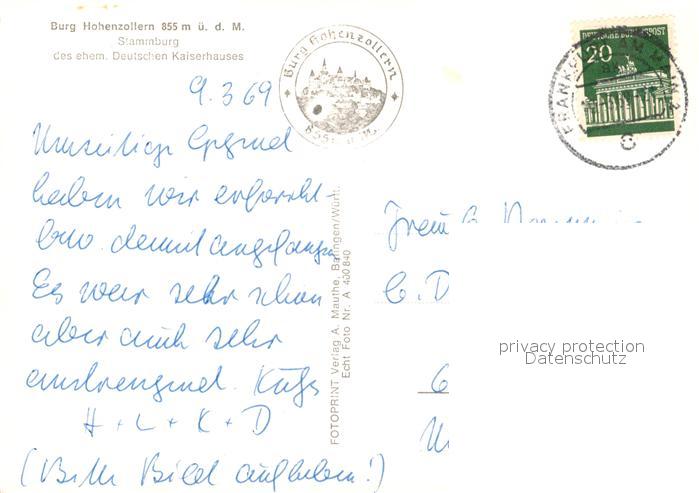 Burg Hohenzollern 855 m ü. d. M.
Stammburg
des ehem. Deutschen Kaiserhauses
Burg Hohenzollern
855 m ü. M.
DEUTSCHE BUNDESPOST
20
FRANKFURT AM MAIN 2
9.3.69
Umseitige Gegend
haben wir erforscht
bzw. damit angefangen
Es war sehr schön
aber auch sehr
anstrengend. Küsse
H + L + K + D
(Bitte Bild aufheben!)
FOTOPRINT Verlag A. Mauthe, Balingen/Württ.
Echt Foto Nr. A 400 840
Frau
privacy protection
Datenschutz